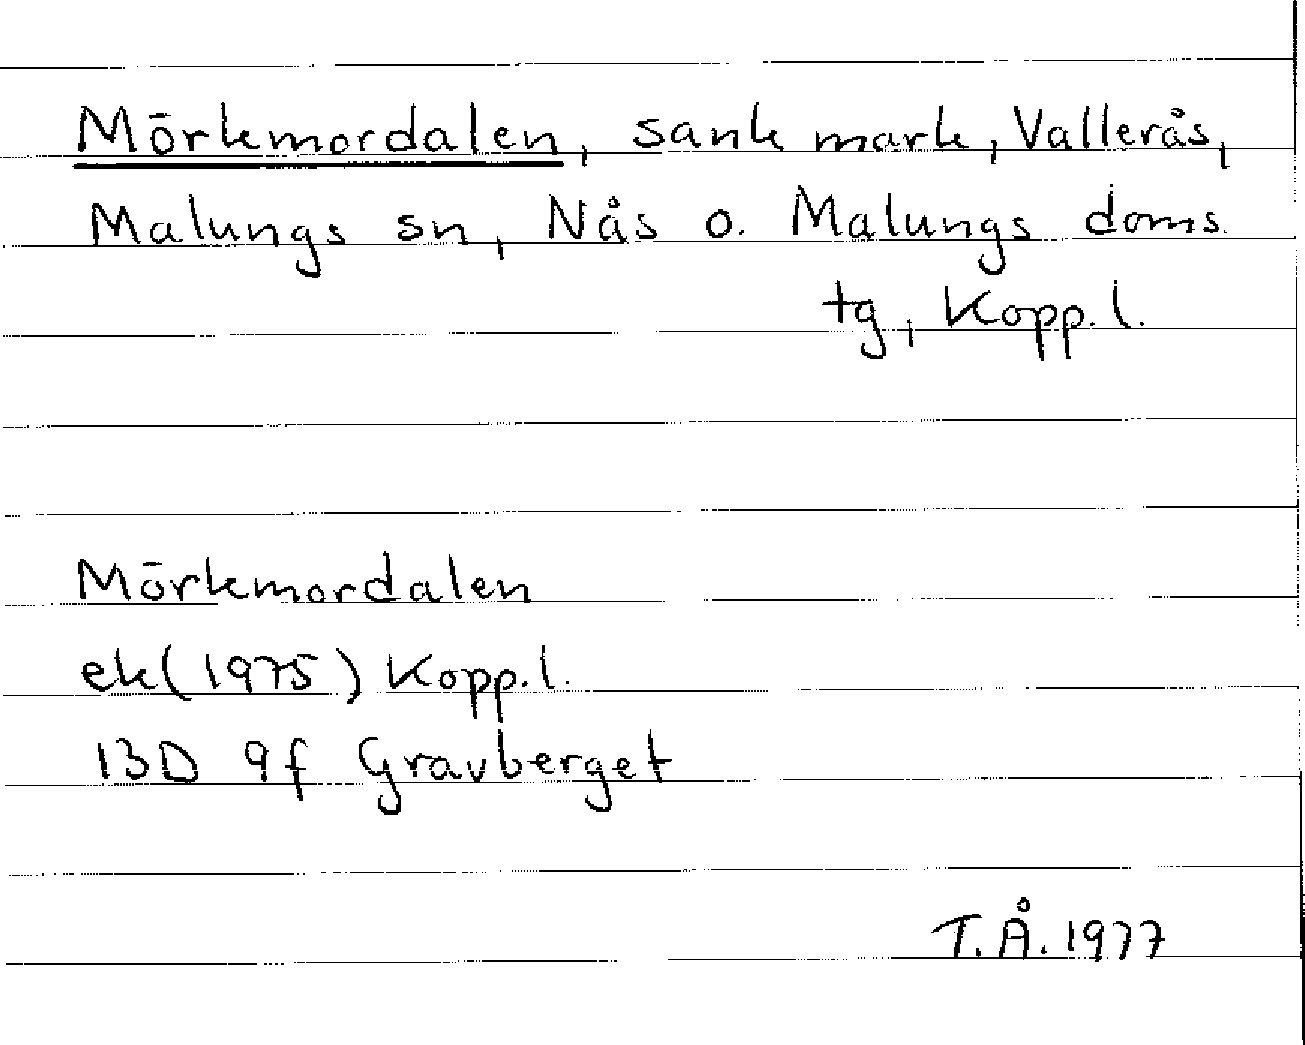 Mörkmordalen, sank mark, Vallerås,
Malungs sn, Nås o. Malungs doms.
tg, Kopp. l.
Mörkmordalen
ek(1975) Kopp. l.
13D 9f Gravberget
T.Å. 1977